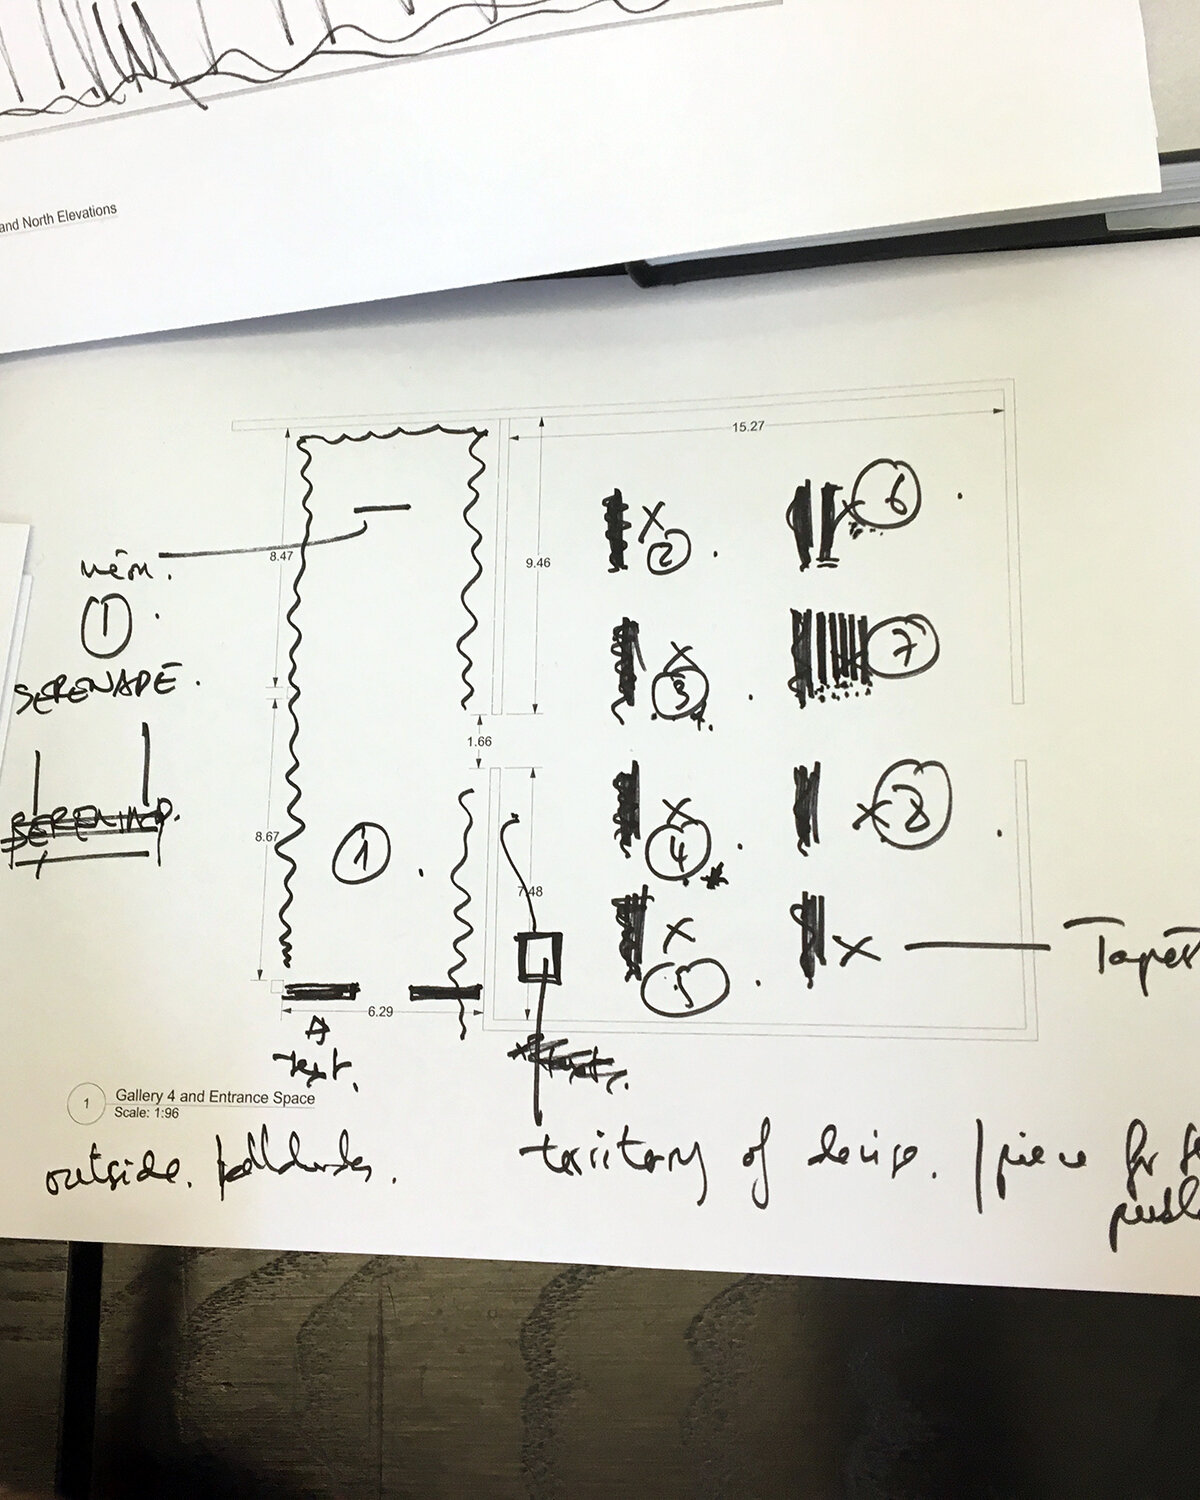 and North Elevations
15.27
8.47
9.46
1.66
8.67
7.48
6.29
①
SERENADE.
2
6
3
7
4
8
1
5
Text.
1
Gallery 4 and Entrance Space
Scale: 1:96
outside.
territory of / piece for